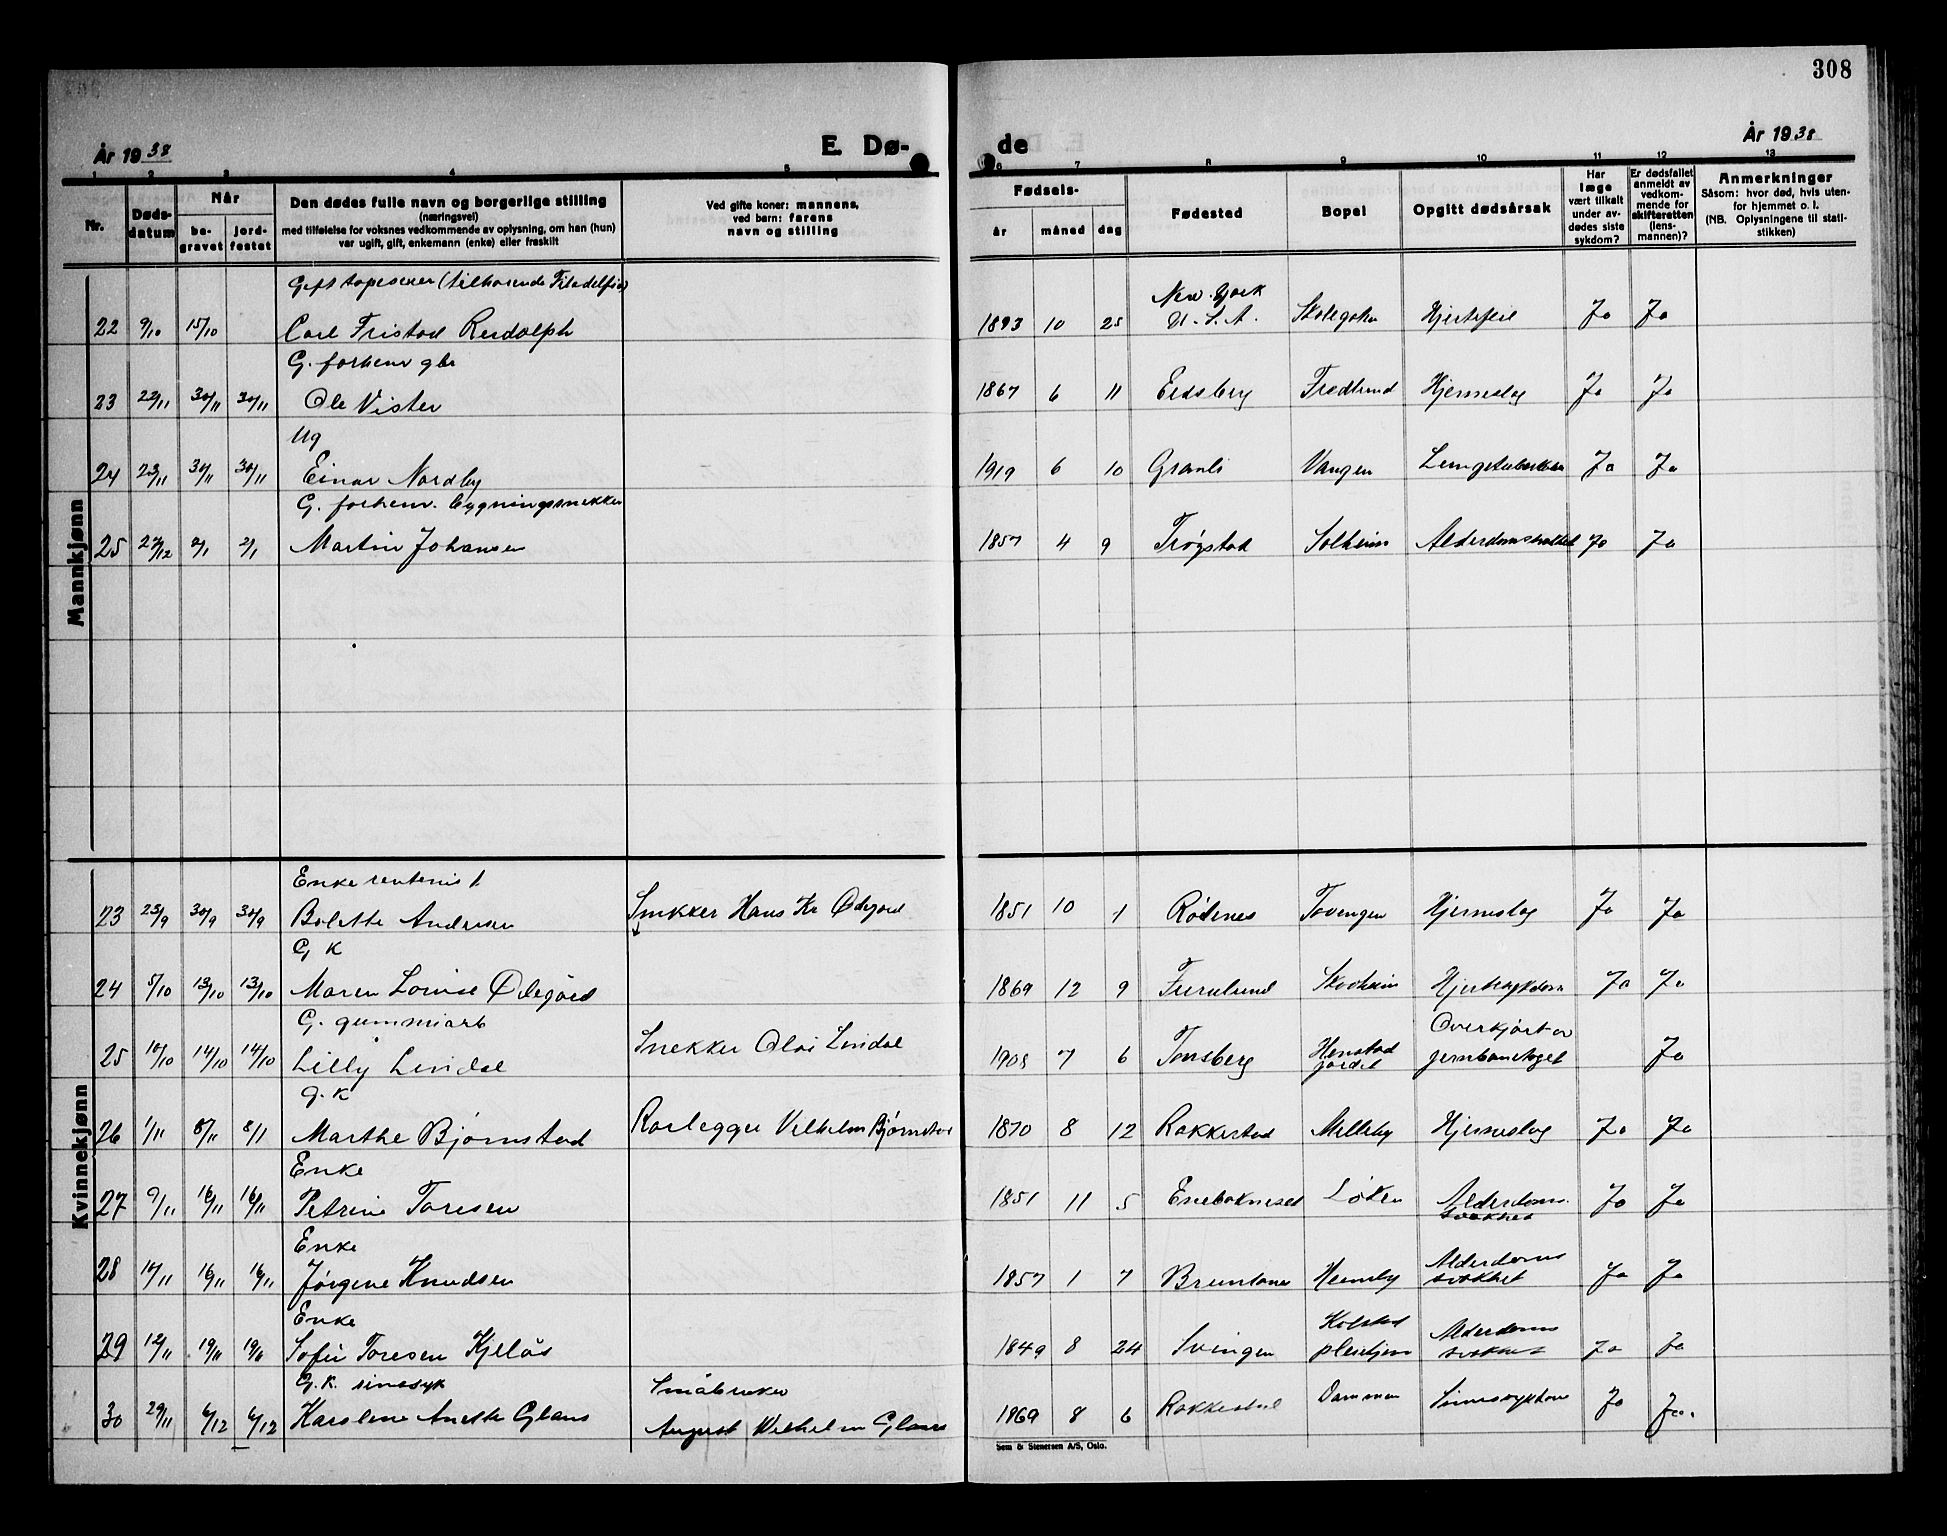 308
År 1938
E. Dø-
de
År 1938
1 2 3 4 5 6 7 8 9 10 11 12 13
Nr.
Døds-
datum
Når
be-
gravet
jord-
festet
Den dødes fulle navn og borgerlige stilling
(næringsvei)
med tilføielse for voksnes vedkommende av oplysning, om han (hun)
var ugift, gift, enkemann (enke) eller fraskilt
Ved gifte koner: mannens,
ved barn: farens
navn og stilling
Fødsels-
år måned dag
Fødested
Bopel
Opgitt dødsårsak
Har
læge
vært tilkalt
under av-
dødes siste
sykdom?
Er dødsfallet
anmeldt av
vedkom-
mende for
skifteretten
(lens-
mannen)?
Anmerkninger
Såsom: hvor død, hvis uten-
for hjemmet o. l.
(NB. Oplysningene til stati-
stikken)
Mannkjønn
Gift tapeserer (tilhørende Filadelfia)
22 9/10 15/10 Carl Fristad Rudolph 1893 10 25 New-York U.S.A. Hjertefeil Ja Ja
G. forhenv gbr
23 22/11 30/11 30/11 Ole Vister 1867 6 11 Eidsberg Fredlund Hjerneslag Ja Ja
Ug
24 23/11 30/11 30/11 Einar Nordby 1919 6 10 Granli Vangen Ja Ja
G. forhenv. bygningssnekker
25 27/12 2/1 2/1 Martin Johansen 1857 4 9 Trøgstad Solheim Ja Ja
Kvinnekjønn
Enke rentenist
23 23/9 30/9 30/9 Bolette Andresen Snekker Hans Kr Ødegård 1851 10 1 Rødenes Tovengen Hjerneslag Ja Ja
G K
24 5/10 13/10 13/10 Maren Lovise Ødegård 1869 12 9 Furulund Skogheim Hjertesykdom Ja Ja
G. gummiarb
25 10/10 14/10 14/10 Lilly Lindal Snekker Olai Lindal 1908 7 6 Tønsberg Henstad jordet Overkjørt av jernbanetoget Ja
G. K
26 1/11 8/11 8/11 Marthe Bjørnstad Rørlegger Vilhelm Bjørnstad 1870 8 12 Rakkestad Melleby Hjerneslag Ja Ja
Enke
27 9/11 16/11 16/11 Petrine Toresen 1851 11 5 Enebakneset Løken Alderdoms svakhet Ja Ja
Enke
28 10/11 16/11 16/11 Jørgine Knudsen 1857 1 7 Hemby Alderdoms svakhet Ja Ja
Enke
29 12/11 19/11 19/11 Sofie Toresen Kjelås 1849 8 24 Svingen Kolstad pleiehjem Alderdoms svakhet Ja Ja
G.K. sinnsyk Småbruker
30 29/11 6/12 6/12 Karoline Anette Glans August Vilhelm Glans 1869 8 6 Rakkestad Dammen Sinnssykdom Ja Ja.
Sem & Stenersen A/S, Oslo.